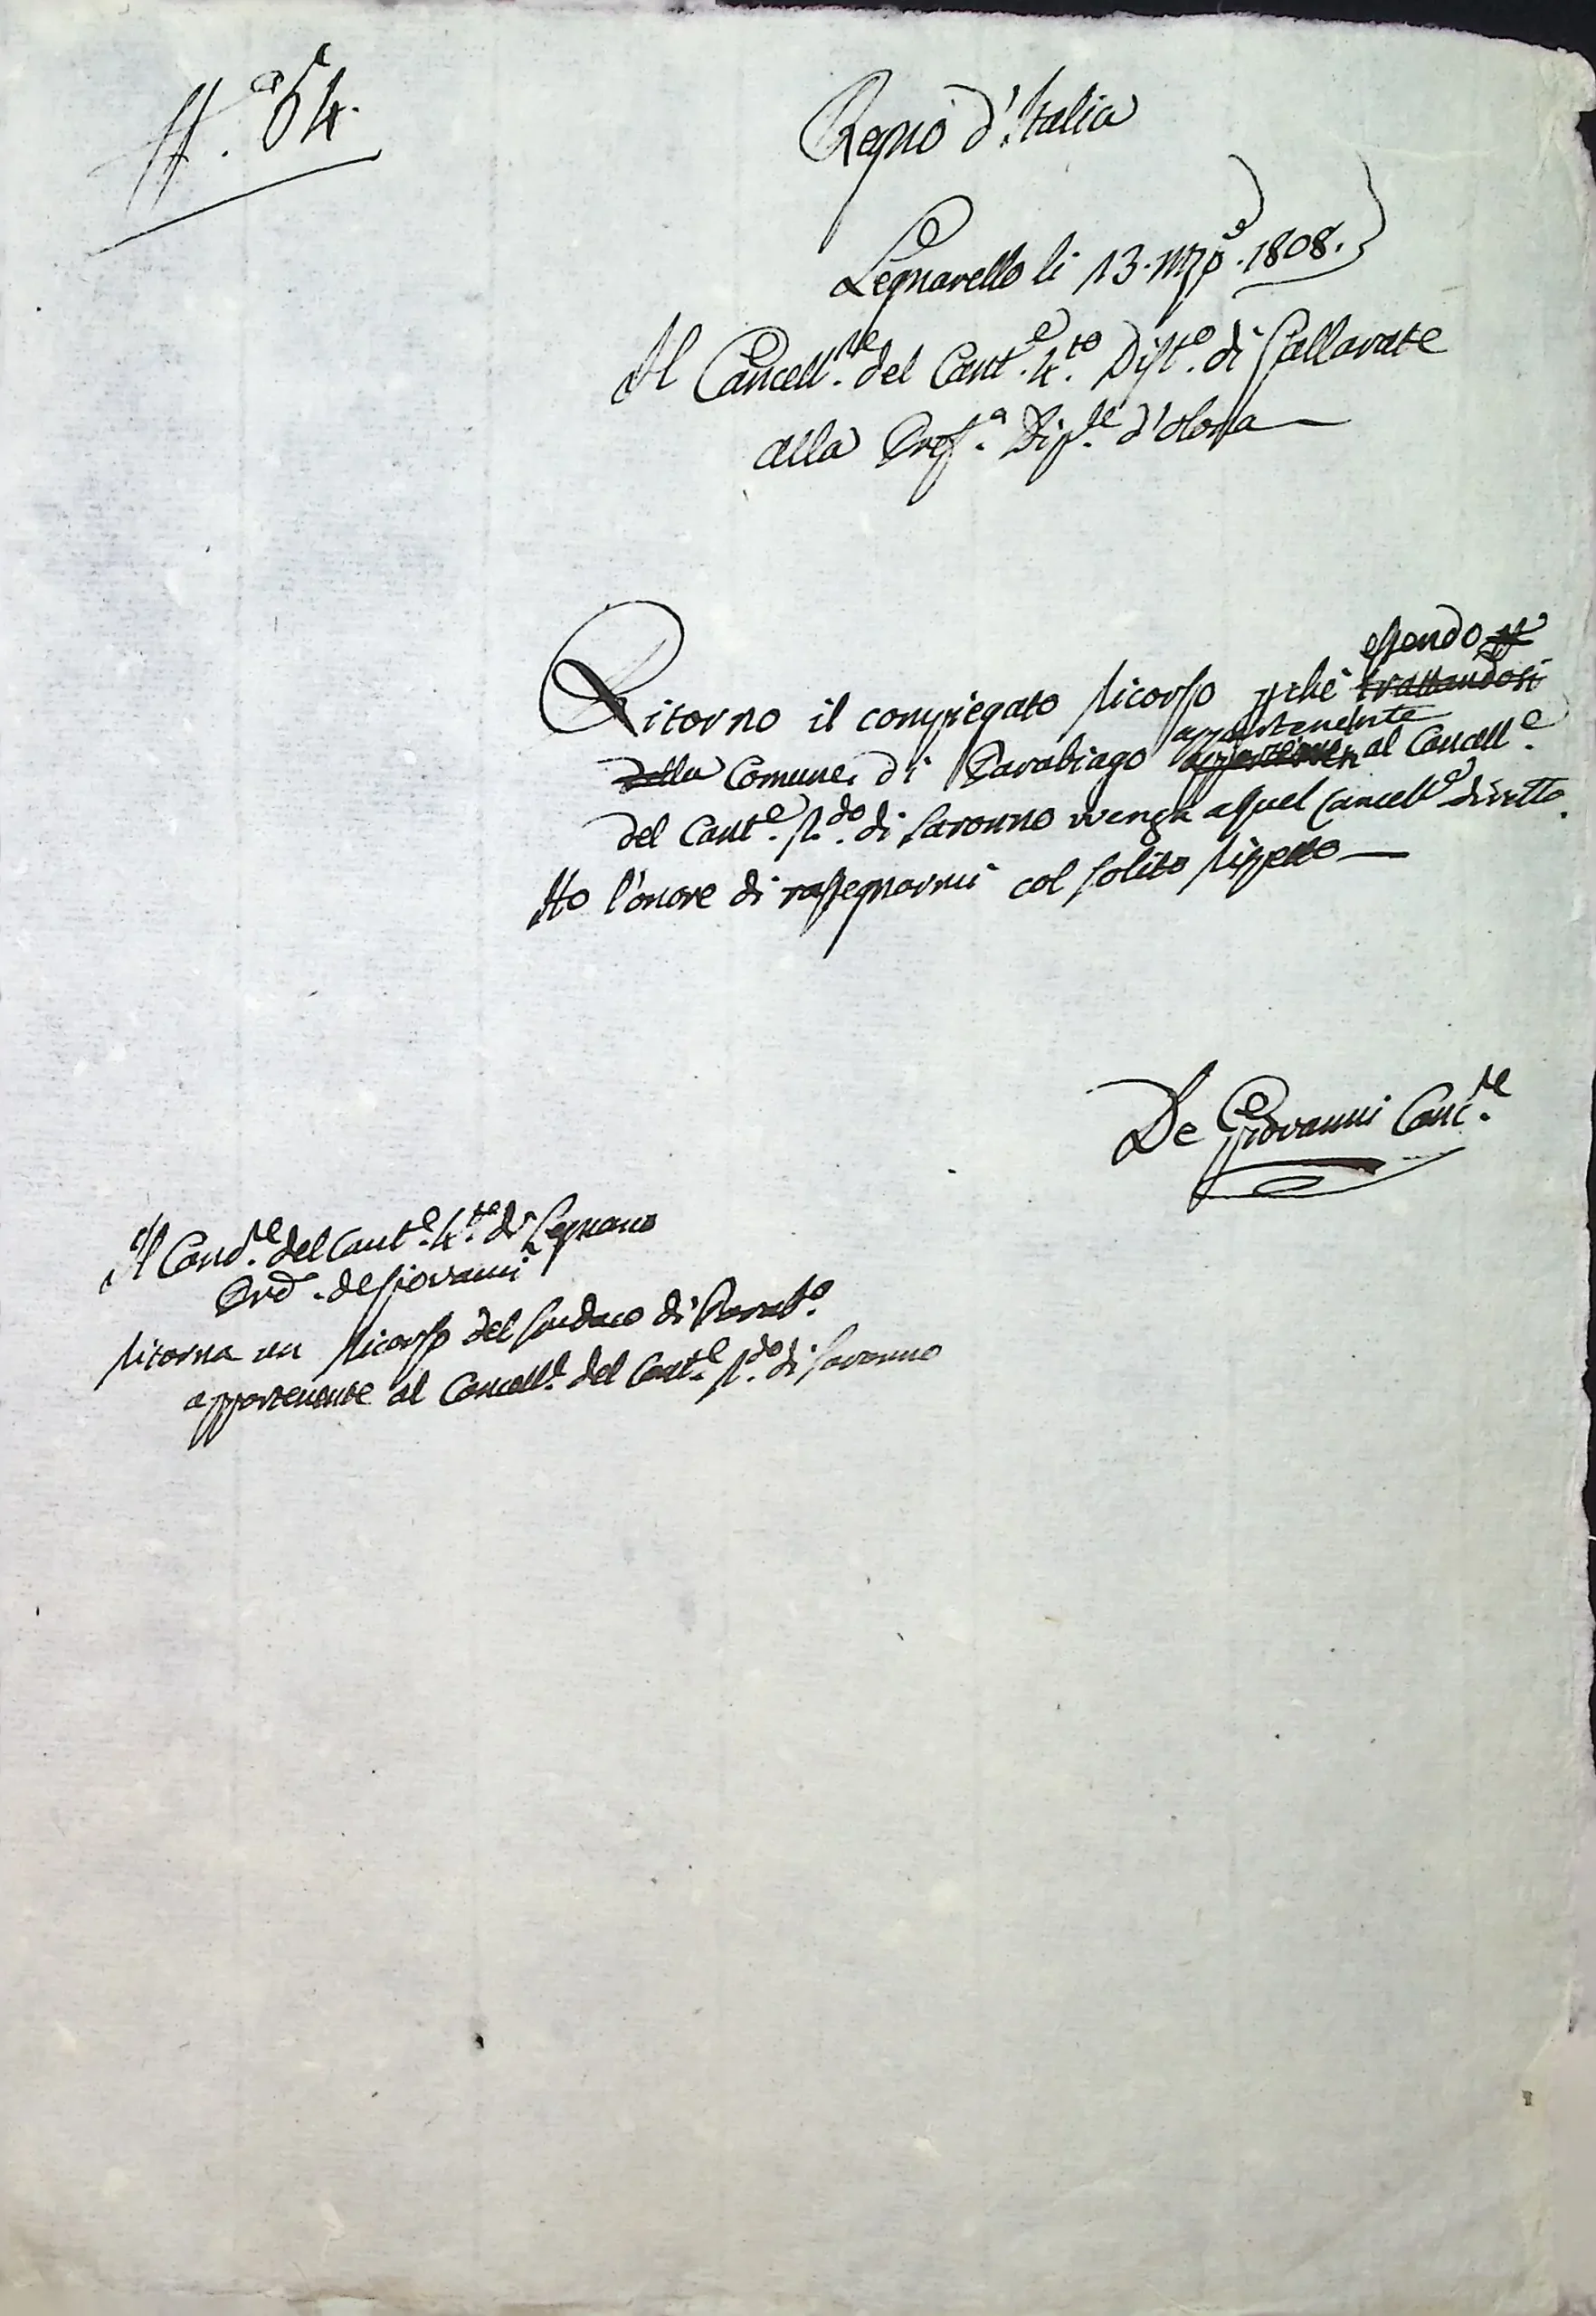 N.º 54.
Regno d'Italia
Legnarello li 13. 1808.
Il Cancell.re del Cant.e 4.to Dist.o di Gallarate
alla Pref.a Dip.le d'Olona
essendo
Ritorno il compiegato Ricorso pchè trattandosi
appartenente
della Comune di Parabiago al Cancell.e
del Cant.e s.do di Saronno venga a quel Cancell.e diretto.
Ho l'onore di rassegnarmi col solito rispetto
De Giovanni Canc.re
Il Canc.re del Cant.e 4.to di Legnano
De Giovanni
ritorna un Ricorso del Sindaco di Parab.o
appartenente al Cancell.e del Cant.e s.do di Saronno